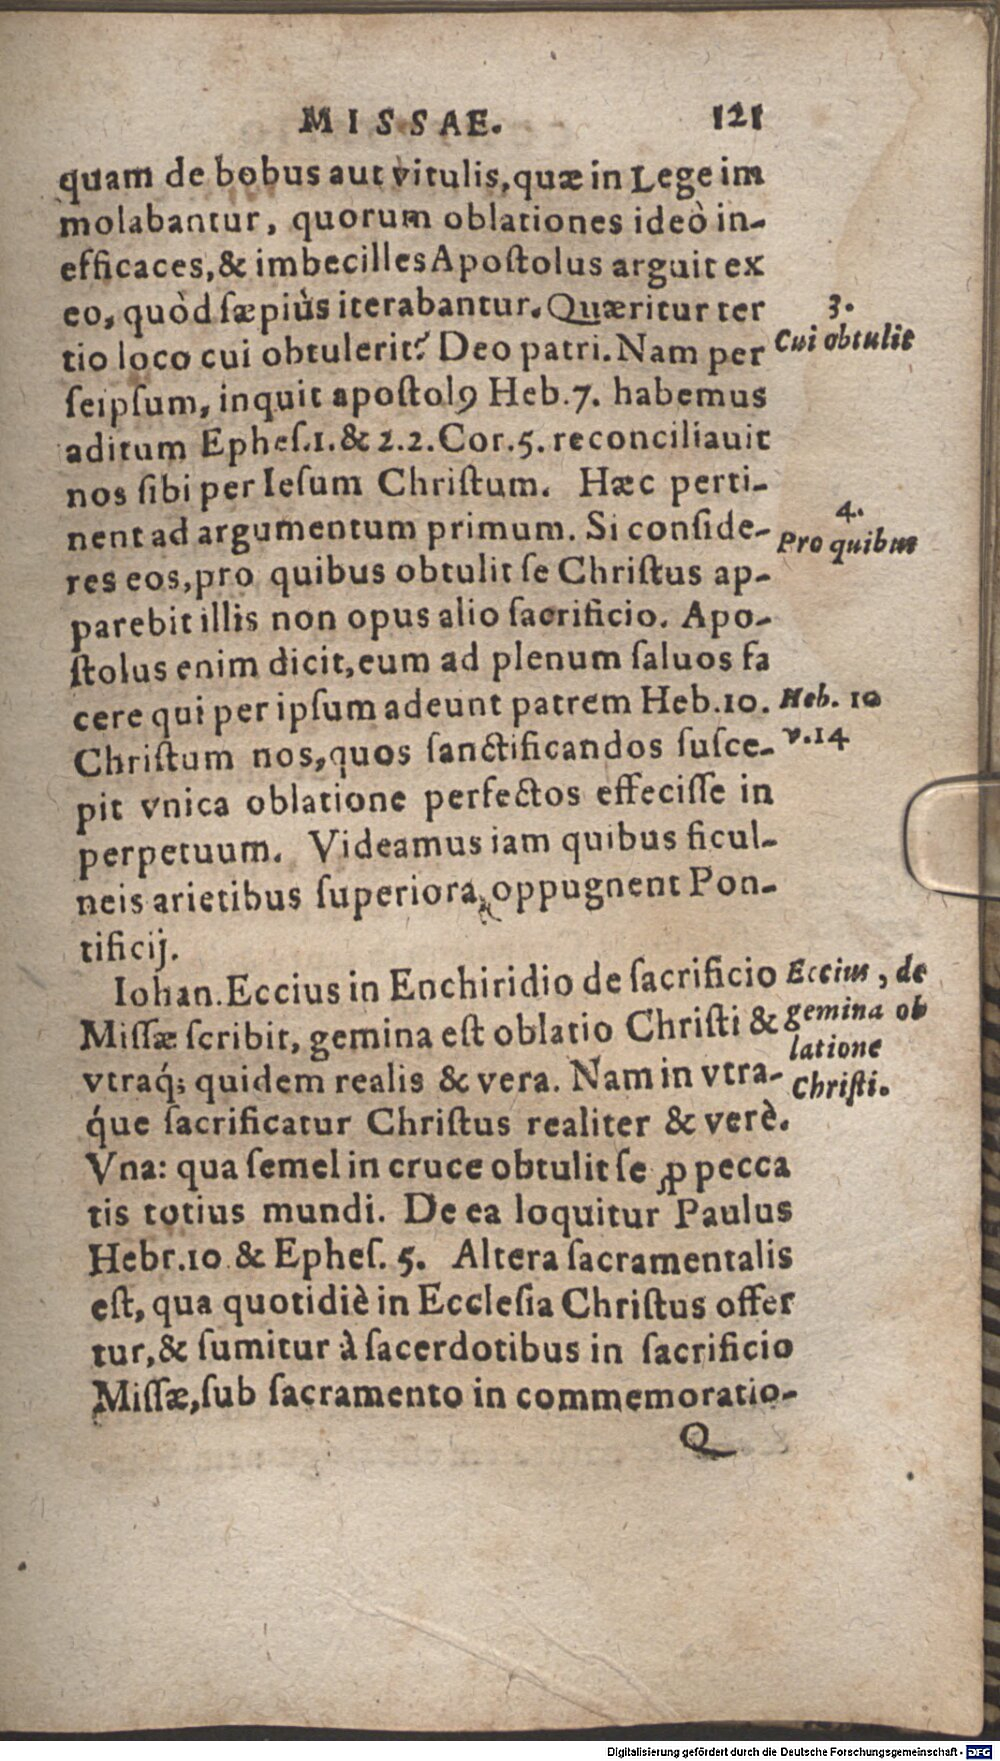 MISSAE. 121
quam de bobus aut vitulis, quæ in Lege im
molabantur, quorum oblationes ideò in-
efficaces, & imbecilles Apostolus arguit ex
eo, quòd sæpiùs iterabantur. Quæritur ter
3.
tio loco cui obtulerit? Deo patri. Nam per
Cui obtulit
seipsum, inquit apostolꝰ Heb. 7. habemus
aditum Ephes. 1. & 2. 2. Cor. 5. reconciliauit
nos sibi per Iesum Christum. Hæc perti-
nent ad argumentum primum. Si conside-
4.
Pro quibus
res eos, pro quibus obtulit se Christus ap-
parebit illis non opus alio sacrificio. Apo-
stolus enim dicit, eum ad plenum saluos fa
cere qui per ipsum adeunt patrem Heb. 10.
Heb. 10
Christum nos, quos sanctificandos susce-
v. 14
pit vnica oblatione perfectos effecisse in
perpetuum. Videamus iam quibus ficul-
neis arietibus superiora, oppugnent Pon-
tificij.
Iohan. Eccius in Enchiridio de sacrificio
Eccius, de
Missæ scribit, gemina est oblatio Christi &
gemina ob
latione
vtraq; quidem realis & vera. Nam in vtra-
Christi.
q́ue sacrificatur Christus realiter & verè.
Vna: qua semel in cruce obtulit se ꝓ pecca
tis totius mundi. De ea loquitur Paulus
Hebr. 10 & Ephes. 5. Altera sacramentalis
est, qua quotidiè in Ecclesia Christus offer
tur, & sumitur à sacerdotibus in sacrificio
Missæ, sub sacramento in commemoratio-
Q
Digitalisierung gefördert durch die Deutsche Forschungsgemeinschaft - DFG